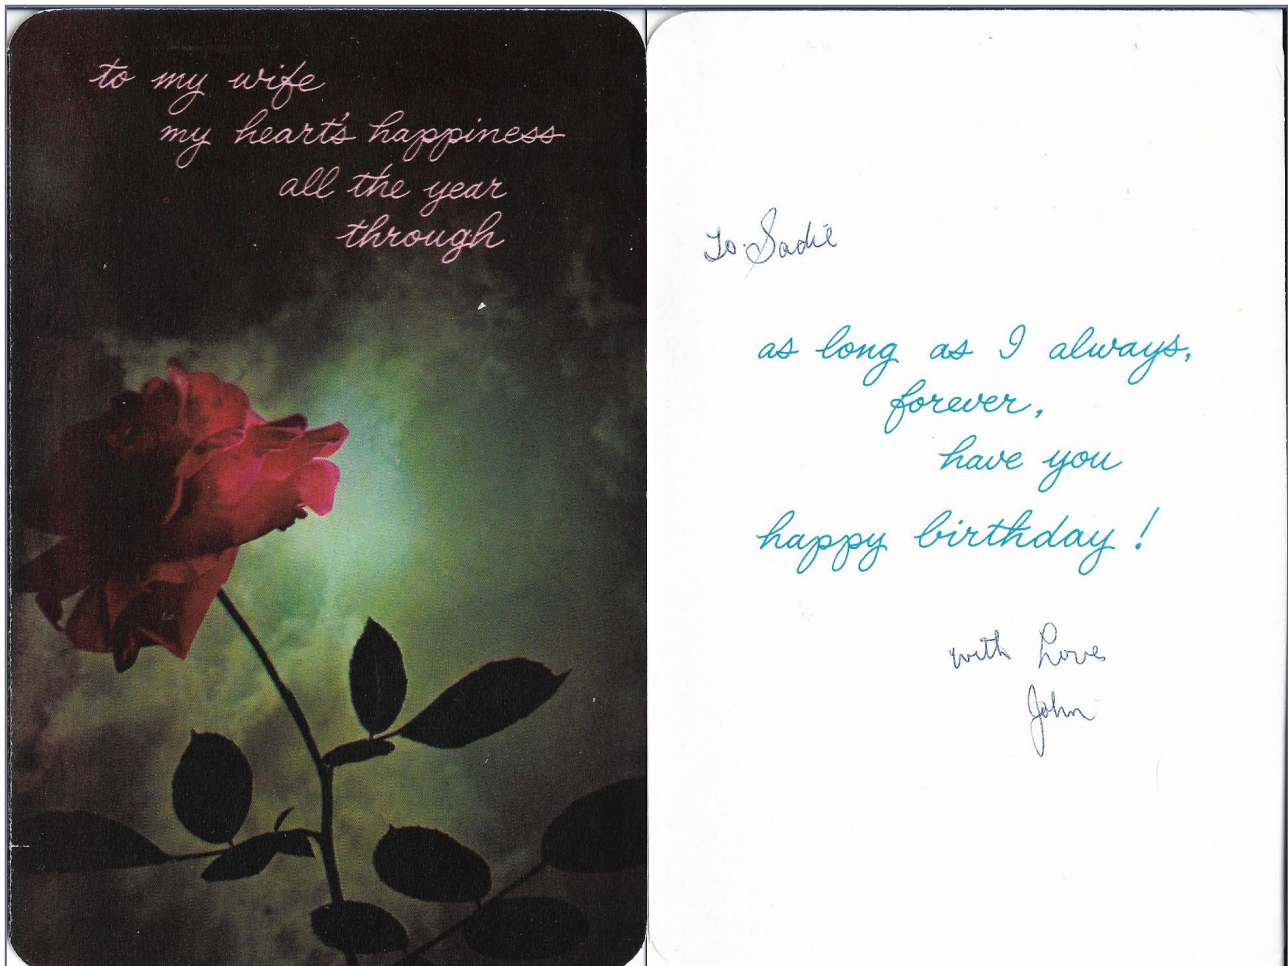 to my wife
my heart's happiness
all the year
through
To Sadie
as long as I always,
forever,
have you
happy birthday!
with Love
John